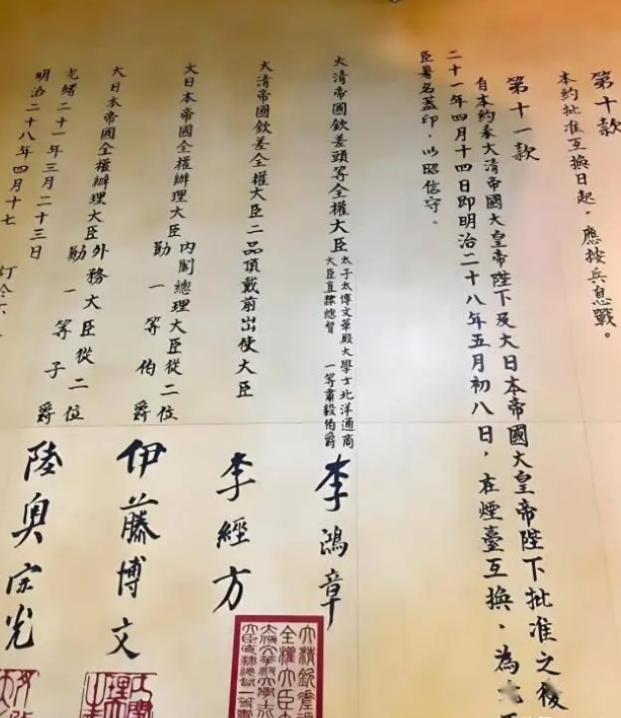 第十款
本約批准互換日起，應按兵息戰。
第十一款
自本約奉大清帝國大皇帝陛下及大日本帝國大皇帝陛下批准之後
二十一年四月十四日即明治二十八年五月初八日，在煙臺互換、為
臣署名蓋印，以昭信守。
大清帝國欽差頭等全權大臣
太子太傅文華殿大學士北洋通商
大臣直隸總督 一等肅毅伯爵
李鴻章
大清帝國欽差全權大臣二品頂戴前出使大臣
李經方
大日本帝國全權辦理大臣
內閣總理大臣從二位
勛一等伯爵
伊藤博文
大日本帝國全權辦理大臣
外務大臣從二位
勛一等子爵
陸奧宗光
光緒二十一年三月二十三日
明治二十八年四月十七
訂於